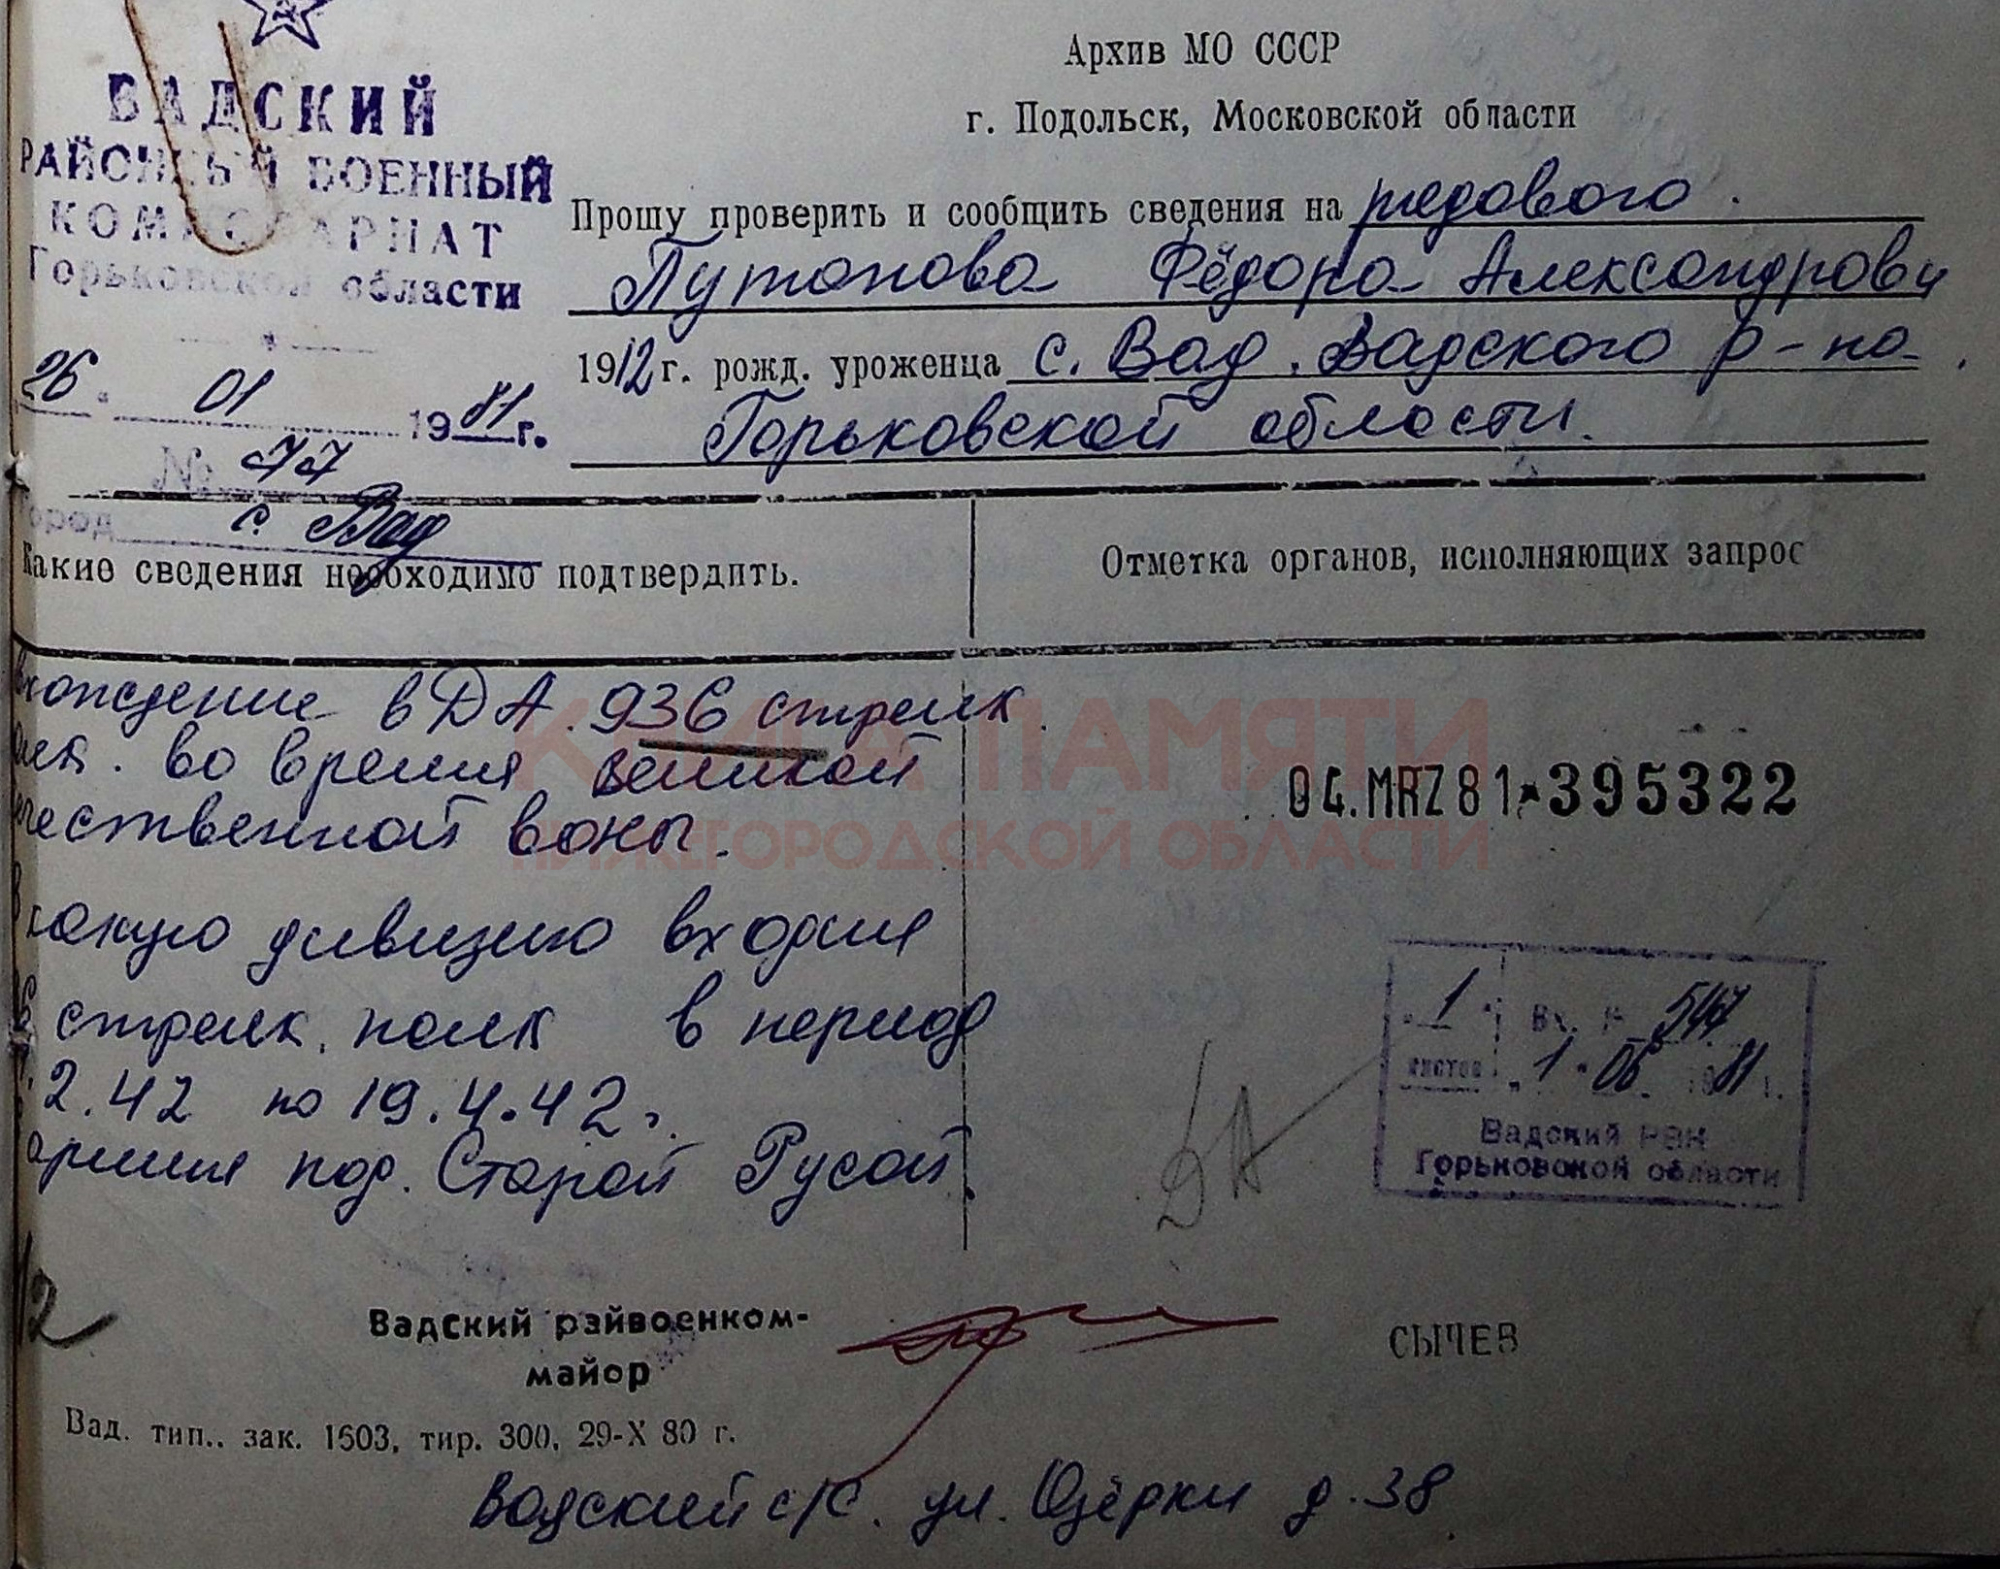 ВАДСКИЙ
РАЙОННЫЙ ВОЕННЫЙ
КОМИССАРИАТ
Горьковской области
26. 01 1981 г.
№ 77
город с. Вад
Архив МО СССР
г. Подольск, Московской области
Прошу проверить и сообщить сведения на рядового
Путанова Фёдора Александрови
1912 г. рожд. уроженца с. Вад. Вадского р-на.
Горьковской области.
Какие сведения необходимо подтвердить.
Отметка органов, исполняющих запрос
вхождение в ДА. 936 стрелк.
полк. во время великой
ечественной воны.
в какую дивизию входил
стрелк. полк в период
2.42 по 19.4.42 г.
армия под. Старой Русой.
04.MRZ81*395322
1 Вх. № 547
листов "1" 06. 1981 г.
Вадский РВК
Горьковской области
ДА
КНИГА ПАМЯТИ
НИЖЕГОРОДСКОЙ ОБЛАСТИ
Вадский райвоенком-
майор
СЫЧЕВ
Вад. тип.. зак. 1603, тир. 300, 29-X 80 г.
Вадский с/с. ул. Озёрки д. 38